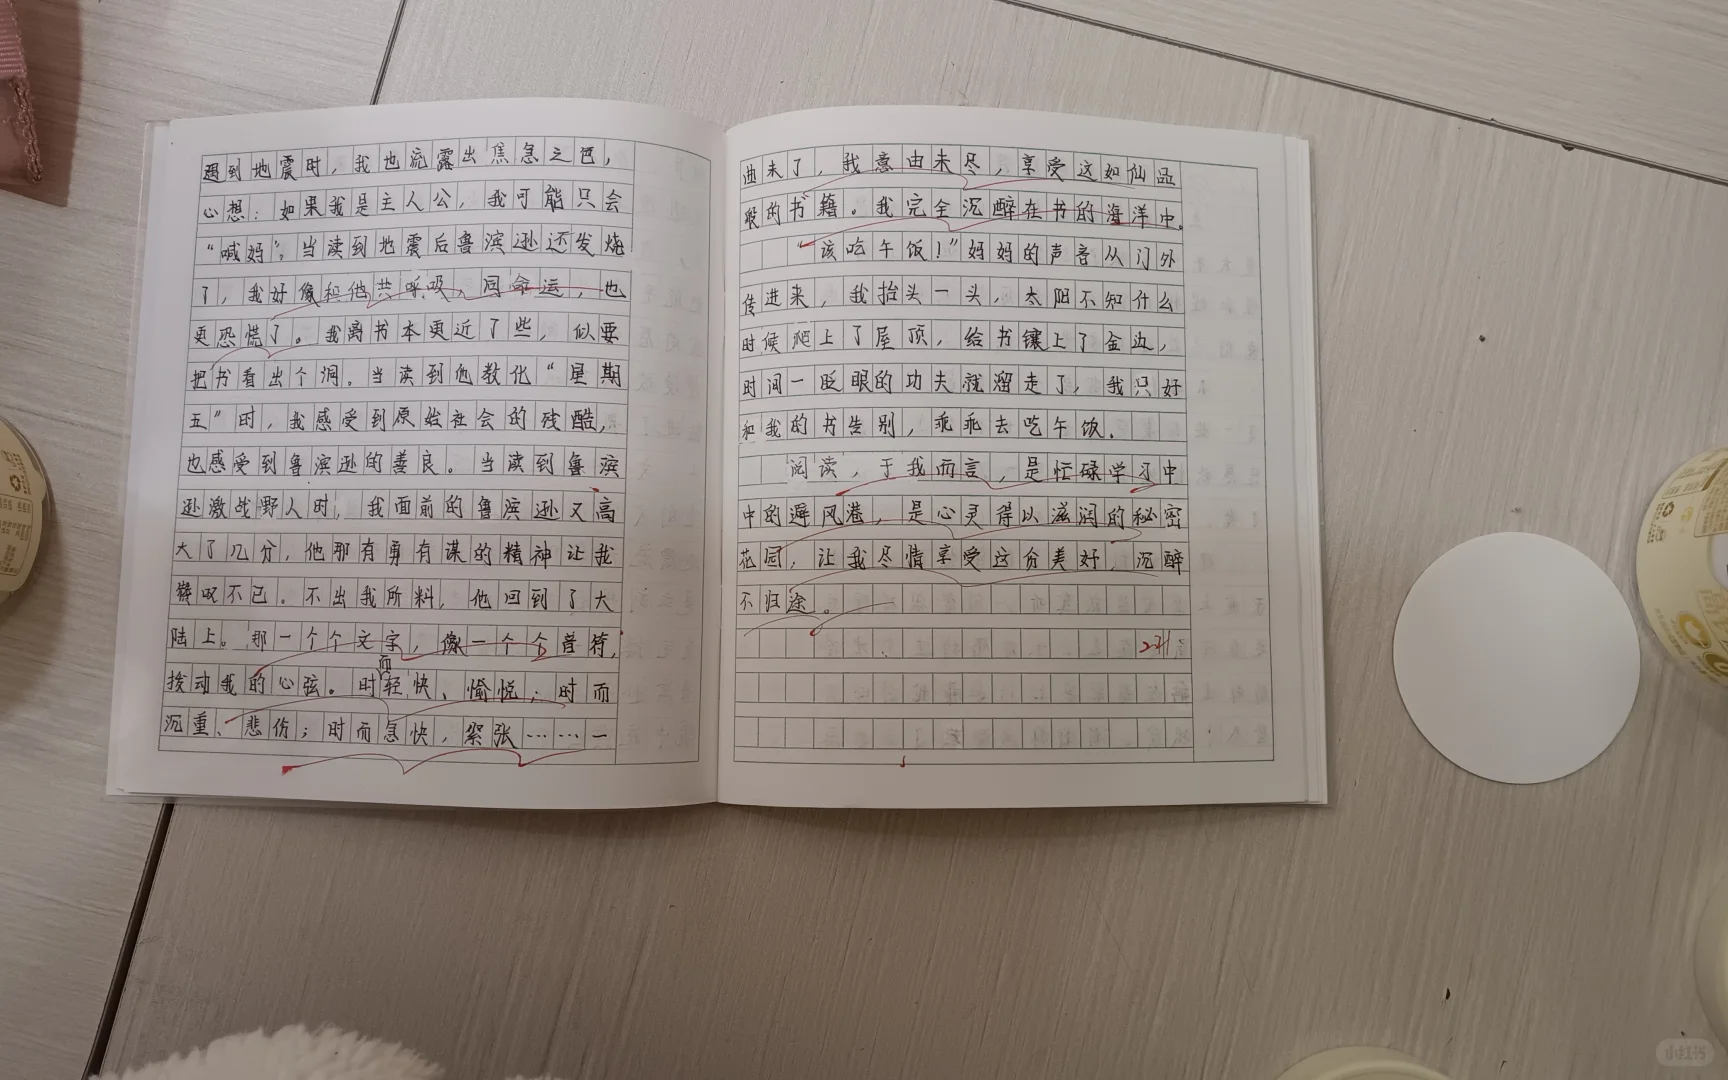 遇到地震时，我也流露出焦急之色，
心想：如果我是主人公，我可能只会
“喊妈”。当读到地震后鲁滨逊还发烧
了，我好像和他共呼吸、同命运，也
更恐慌了。我离书本更近了些，似要
把书看出个洞。当读到他教化“星期
五”时，我感受到原始社会的残酷，
也感受到鲁滨逊的善良。当读到鲁滨
逊激战野人时，我面前的鲁滨逊又高
大了几分，他那有勇有谋的精神让我
叹不已。不出我所料，他回到了大
陆上。那一个个文字，像一个个音符，
拨动我的心弦。时而轻快、愉悦；时而
沉重、悲伤；时而急快，紧张……一
曲未了，我意由未尽，享受这如仙品
般的书籍。我完全沉醉在书的海洋中。
“该吃午饭！”妈妈的声音从门外
传进来，我抬头一头，太阳不知什么
时候爬上了屋顶，给书镶上了金边，
时间一眨眼的功夫就溜走了，我只好
和我的书告别，乖乖去吃午饭．
阅读，于我而言，是忙碌学习中
中的避风港，是心灵得以滋润的秘密
花园，让我尽情享受这份美好，沉醉
不归途。
小红书